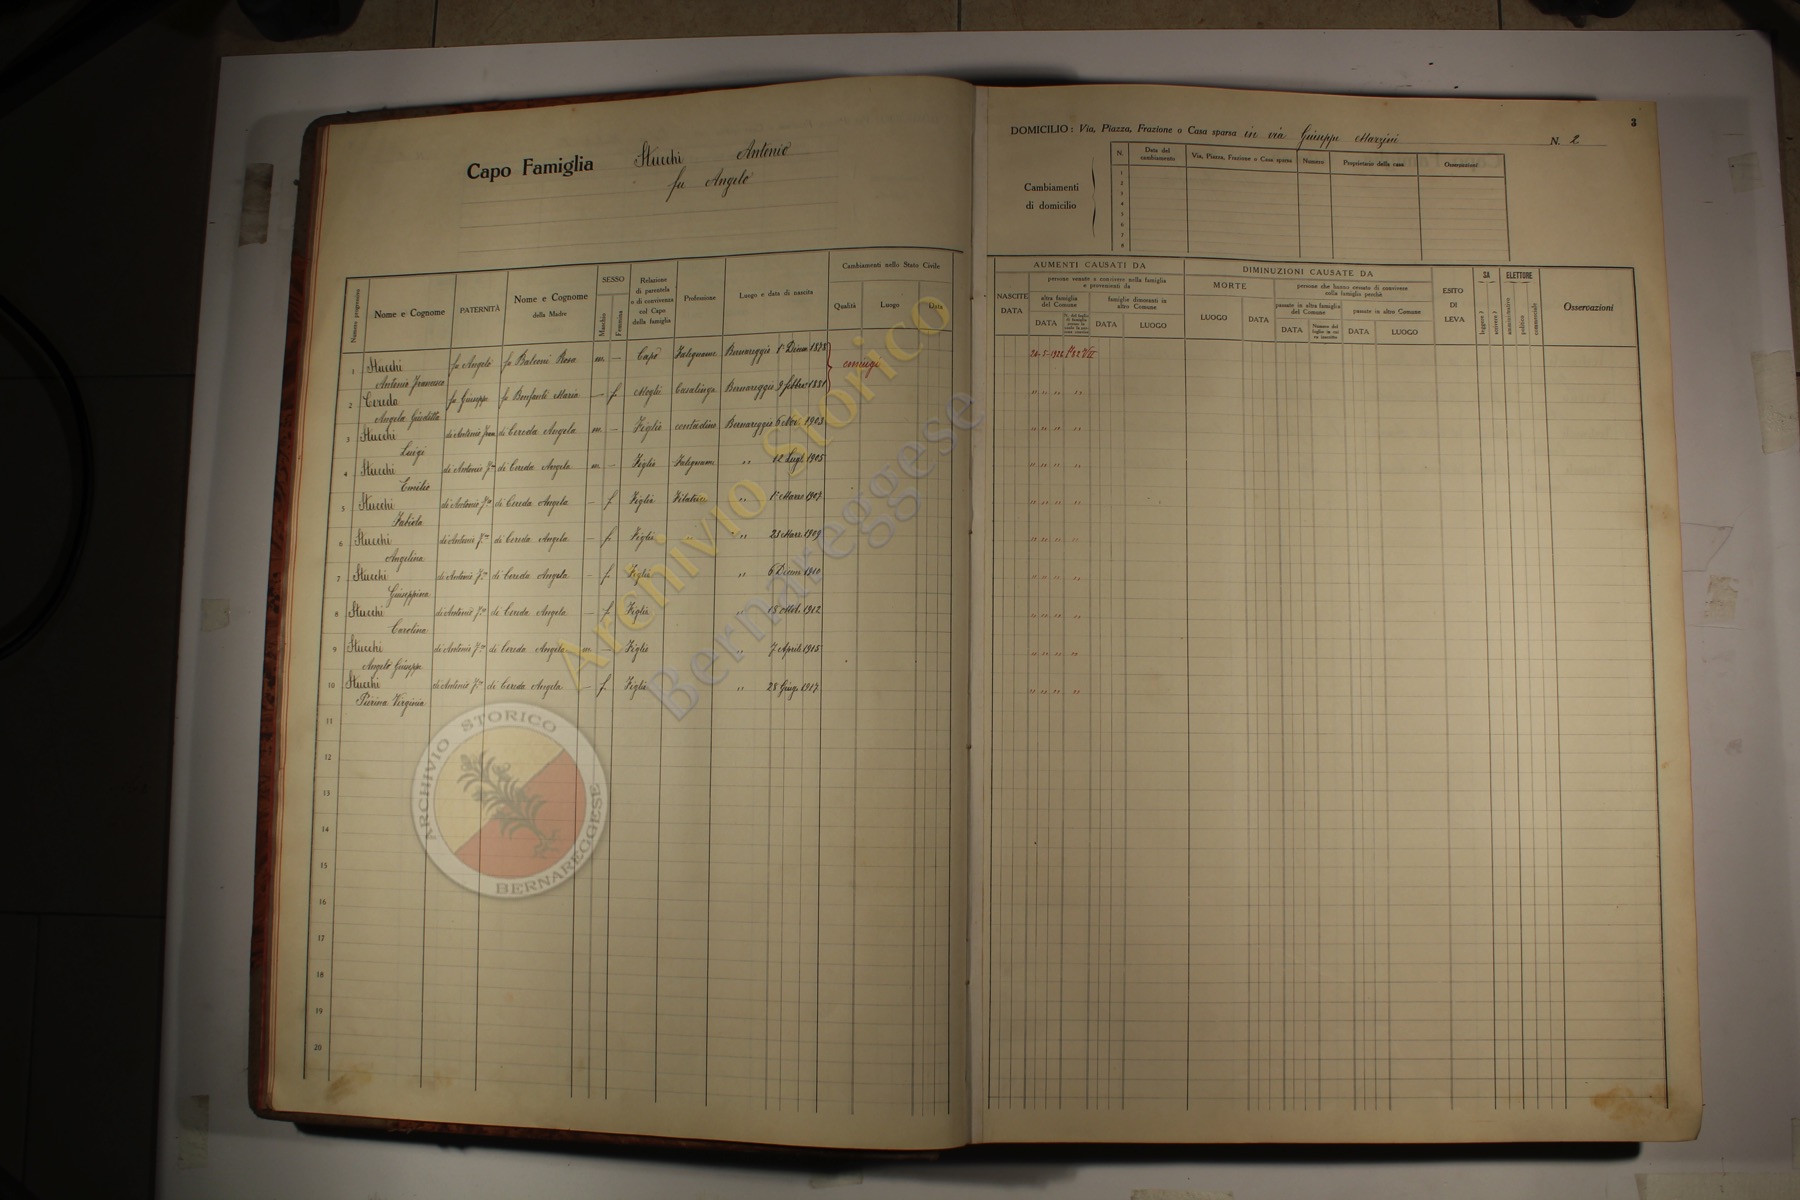 Capo Famiglia Stucchi Antonio
fu Angelo
3
DOMICILIO: Via, Piazza, Frazione o Casa sparsa in via Giuseppe Mazzini N. 2
Cambiamenti
di domicilio
N. Data del cambiamento Via, Piazza, Frazione o Casa sparsa Numero Proprietario della casa Osservazioni
1
2
3
4
5
6
7
8
Numero progressivo Nome e Cognome PATERNITÀ Nome e Cognome della Madre SESSO Maschio Femmina Relazione di parentela o di convivenza col Capo della famiglia Professione Luogo e data di nascita Cambiamenti nello Stato Civile Qualità Luogo Data
NASCITE DATA AUMENTI CAUSATI DA
persone venute a convivere nella famiglia e provenienti da
altra famiglia del Comune DATA
famiglie dimoranti in altro Comune DATA LUOGO
DIMINUZIONI CAUSATE DA
MORTE LUOGO DATA
persone che hanno cessato di convivere nella famiglia perchè
passate in altra famiglia del Comune DATA
passate in altro Comune DATA LUOGO
ESITO DI LEVA
SA leggere? scrivere?
ELETTORE amministrativo politico commerciale
Osservazioni
1 Stucchi Antonio Francesco fu Angelo fu Balconi Rosa m. — Capo Falegname Bernareggio 1° Dicem. 1878 coniugi 24-5-1926
2 Cereda Angela Giuditta fu Giuseppe fu Bonfanti Maria — f. Moglie Casalinga Bernareggio 9 febbr. 1881 " " " "
3 Stucchi Luigi di Antonio Fran. di Cereda Angela m. — Figlio contadino Bernareggio 6 Nov. 1903 " " " "
4 Stucchi Emilio di Antonio F.co di Cereda Angela m. — Figlio Falegname " 12 Lugl. 1905 " " " "
5 Stucchi Fabiola di Antonio F.co di Cereda Angela — f. Figlia Filatrice " 1° Marzo 1907 " " " "
6 Stucchi Angelina di Antonio F.co di Cereda Angela — f. Figlia " " 23 Mar. 1909 " " " "
7 Stucchi Giuseppina di Antonio F.co di Cereda Angela — f. Figlia " 6 Dicem. 1910 " " " "
8 Stucchi Carolina di Antonio F.co di Cereda Angela — f. Figlia " 15 ottob. 1912 " " " "
9 Stucchi Angelo Giuseppe di Antonio F.co di Cereda Angela m. — Figlio " 7 Aprile 1915 " " " "
10 Stucchi Pierina Virginia di Antonio F.co di Cereda Angela — f. Figlia " 28 Giug. 1917 " " " "
11
12
13
14
15
16
17
18
19
20
Archivio Storico
Bernareggese
ARCHIVIO STORICO
BERNAREGGESE